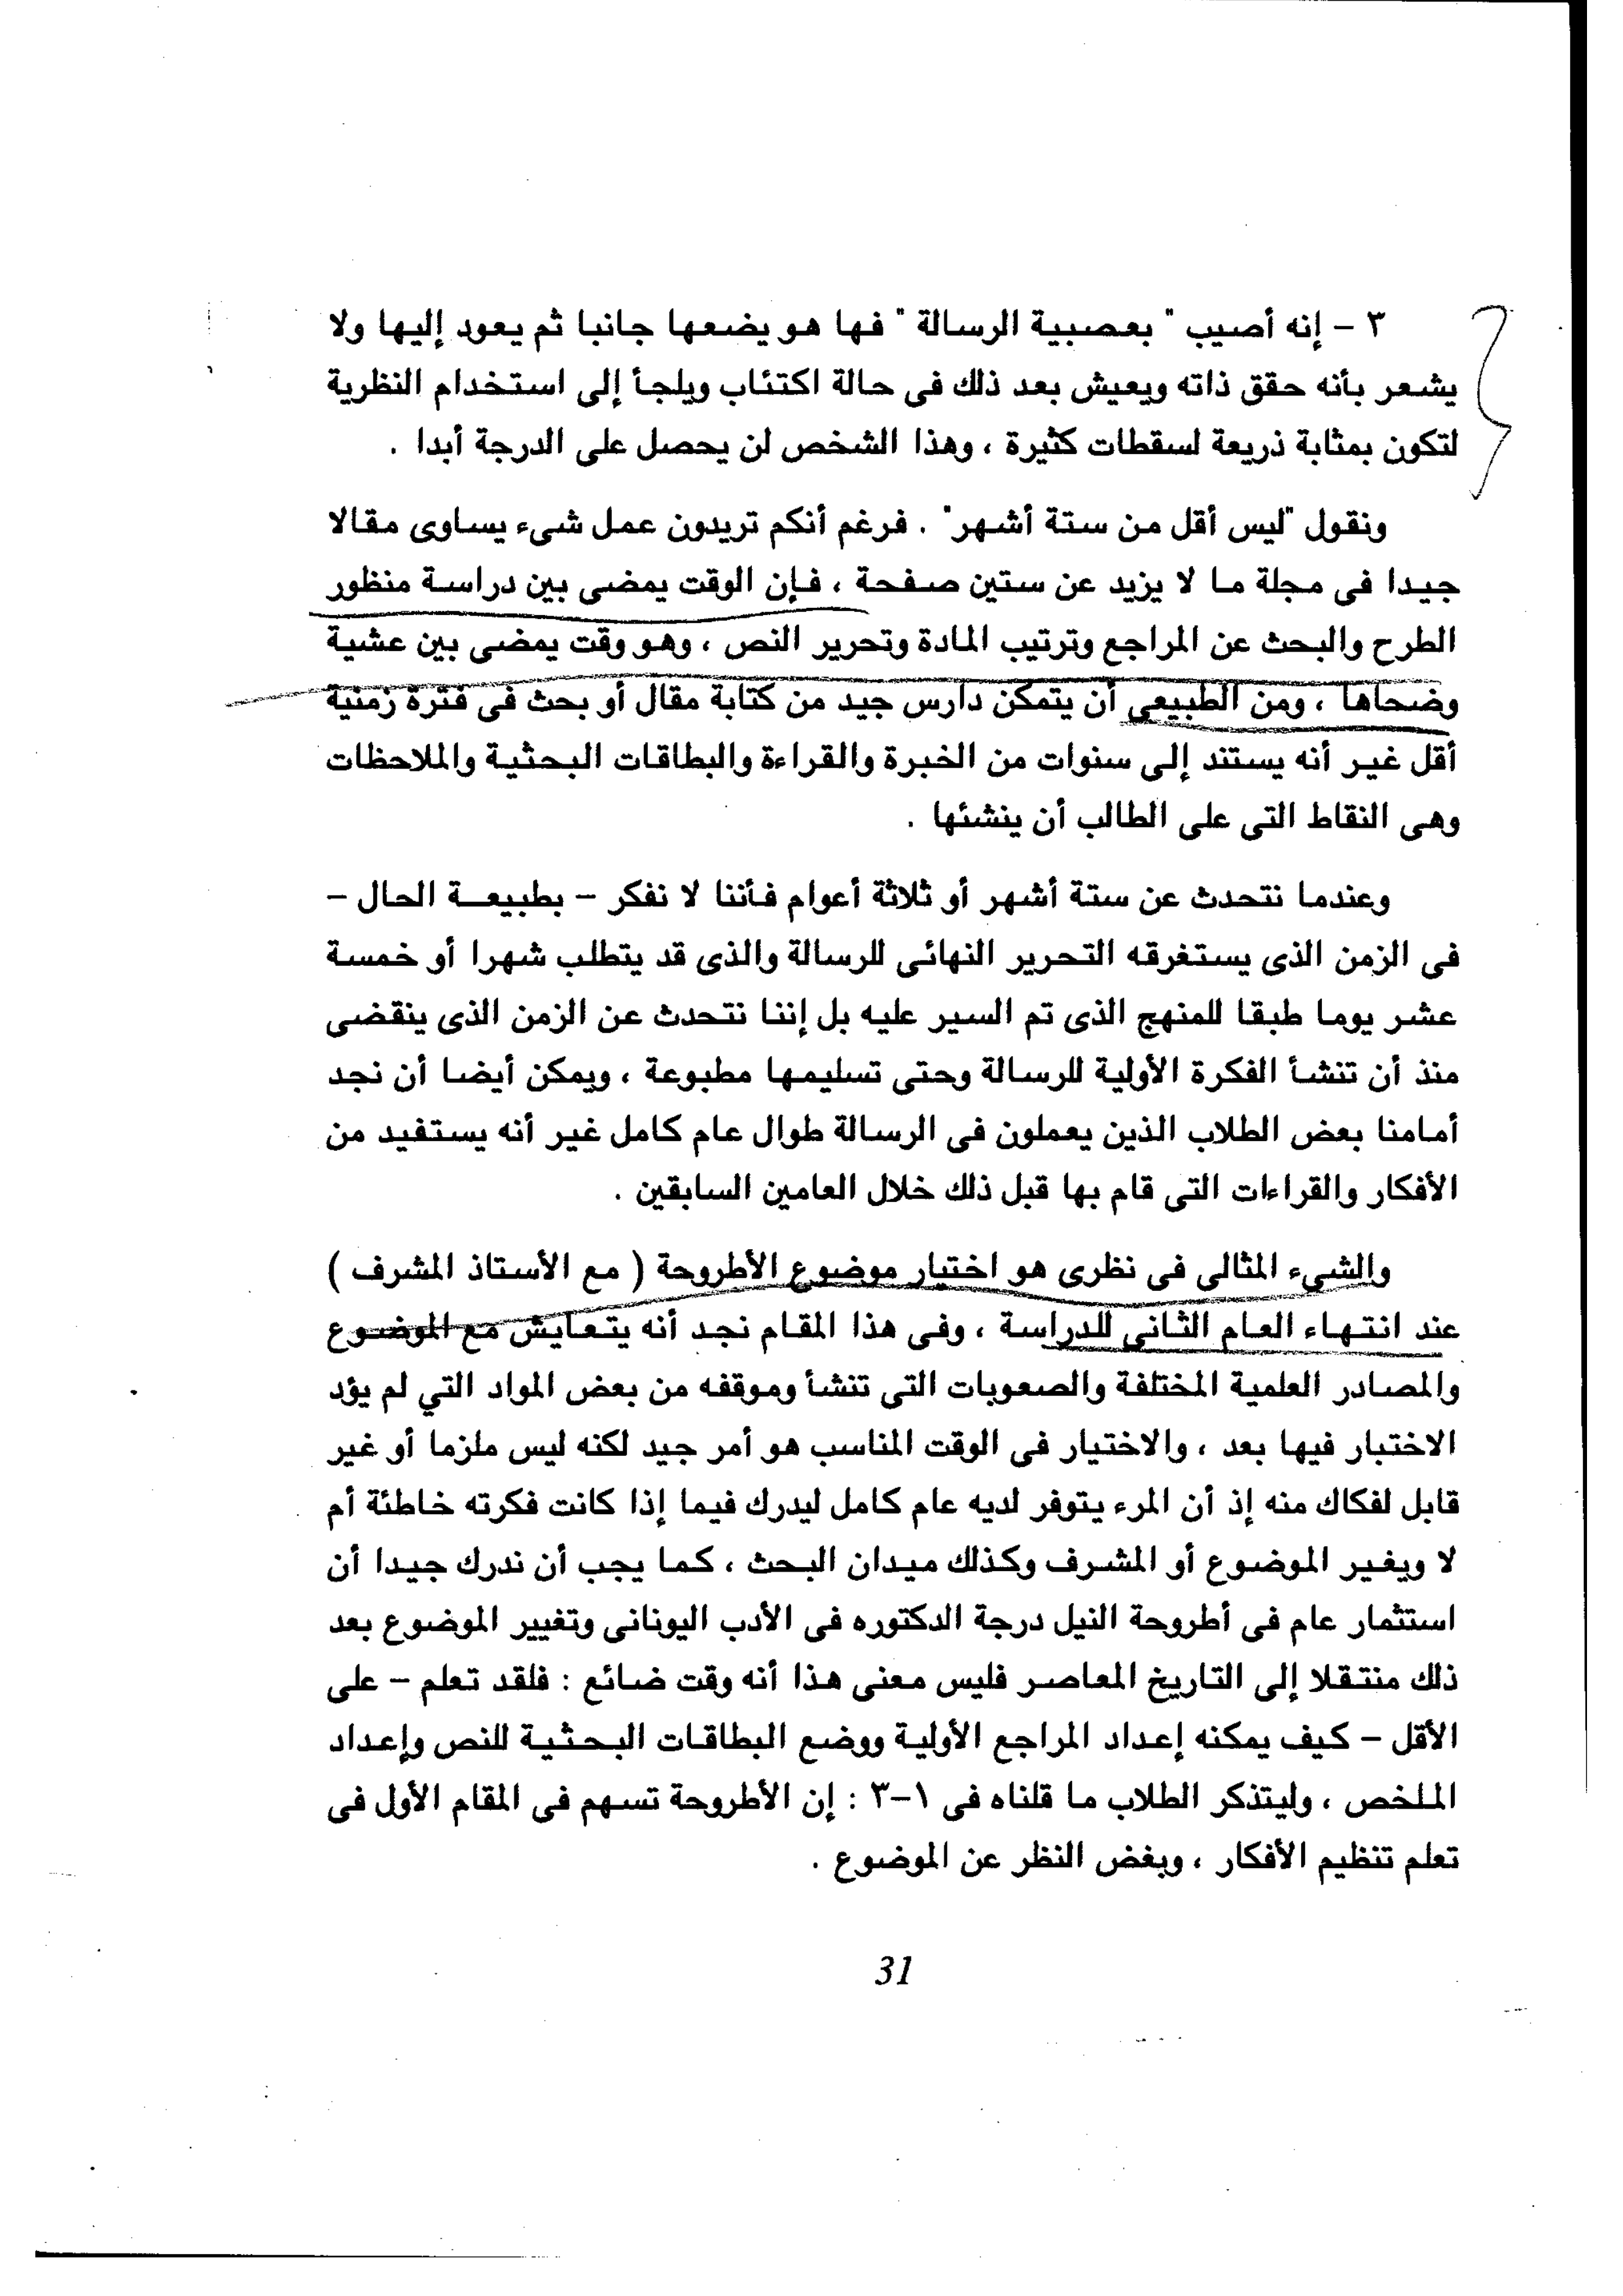 ٣ – إنه أصيب " بعصبية الرسالة " فها هو يضعها جانبا ثم يعود إليها ولا
يشعر بأنه حقق ذاته ويعيش بعد ذلك فى حالة اكتئاب ويلجأ إلى استخدام النظرية
لتكون بمثابة ذريعة لسقطات كثيرة ، وهذا الشخص لن يحصل على الدرجة أبدا .
ونقول "ليس أقل من ستة أشهر" . فرغم أنكم تريدون عمل شىء يساوى مقالا
جيدا فى مجلة ما لا يزيد عن ستين صفحة ، فإن الوقت يمضى بين دراسة منظور
الطرح والبحث عن المراجع وترتيب المادة وتحرير النص ، وهو وقت يمضى بين عشية
وضحاها ، ومن الطبيعى أن يتمكن دارس جيد من كتابة مقال أو بحث فى فترة زمنية
أقل غير أنه يستند إلى سنوات من الخبرة والقراءة والبطاقات البحثية والملاحظات
وهى النقاط التى على الطالب أن ينشئها .
وعندما نتحدث عن ستة أشهر أو ثلاثة أعوام فأننا لا نفكر – بطبيعة الحال –
فى الزمن الذى يستغرقه التحرير النهائى للرسالة والذى قد يتطلب شهرا أو خمسة
عشر يوما طبقا للمنهج الذى تم السير عليه بل إننا نتحدث عن الزمن الذى ينقضى
منذ أن تنشأ الفكرة الأولية للرسالة وحتى تسليمها مطبوعة ، ويمكن أيضا أن نجد
أمامنا بعض الطلاب الذين يعملون فى الرسالة طوال عام كامل غير أنه يستفيد من
الأفكار والقراءات التى قام بها قبل ذلك خلال العامين السابقين .
والشىء المثالى فى نظرى هو اختيار موضوع الأطروحة ( مع الأستاذ المشرف )
عند انتهاء العام الثانى للدراسة ، وفى هذا المقام نجد أنه يتعايش مع الموضوع
والمصادر العلمية المختلفة والصعوبات التى تنشأ وموقفه من بعض المواد التي لم يؤد
الاختبار فيها بعد ، والاختيار فى الوقت المناسب هو أمر جيد لكنه ليس ملزما أو غير
قابل لفكاك منه إذ أن المرء يتوفر لديه عام كامل ليدرك فيما إذا كانت فكرته خاطئة أم
لا ويغير الموضوع أو المشرف وكذلك ميدان البحث ، كما يجب أن ندرك جيدا أن
استثمار عام فى أطروحة النيل درجة الدكتوره فى الأدب اليونانى وتغيير الموضوع بعد
ذلك منتقلا إلى التاريخ المعاصر فليس معنى هذا أنه وقت ضائع : فلقد تعلم – على
الأقل – كيف يمكنه إعداد المراجع الأولية ووضع البطاقات البحثية للنص وإعداد
الملخص ، وليتذكر الطلاب ما قلناه فى ١–٣ : إن الأطروحة تسهم فى المقام الأول فى
تعلم تنظيم الأفكار ، وبغض النظر عن الموضوع .
31